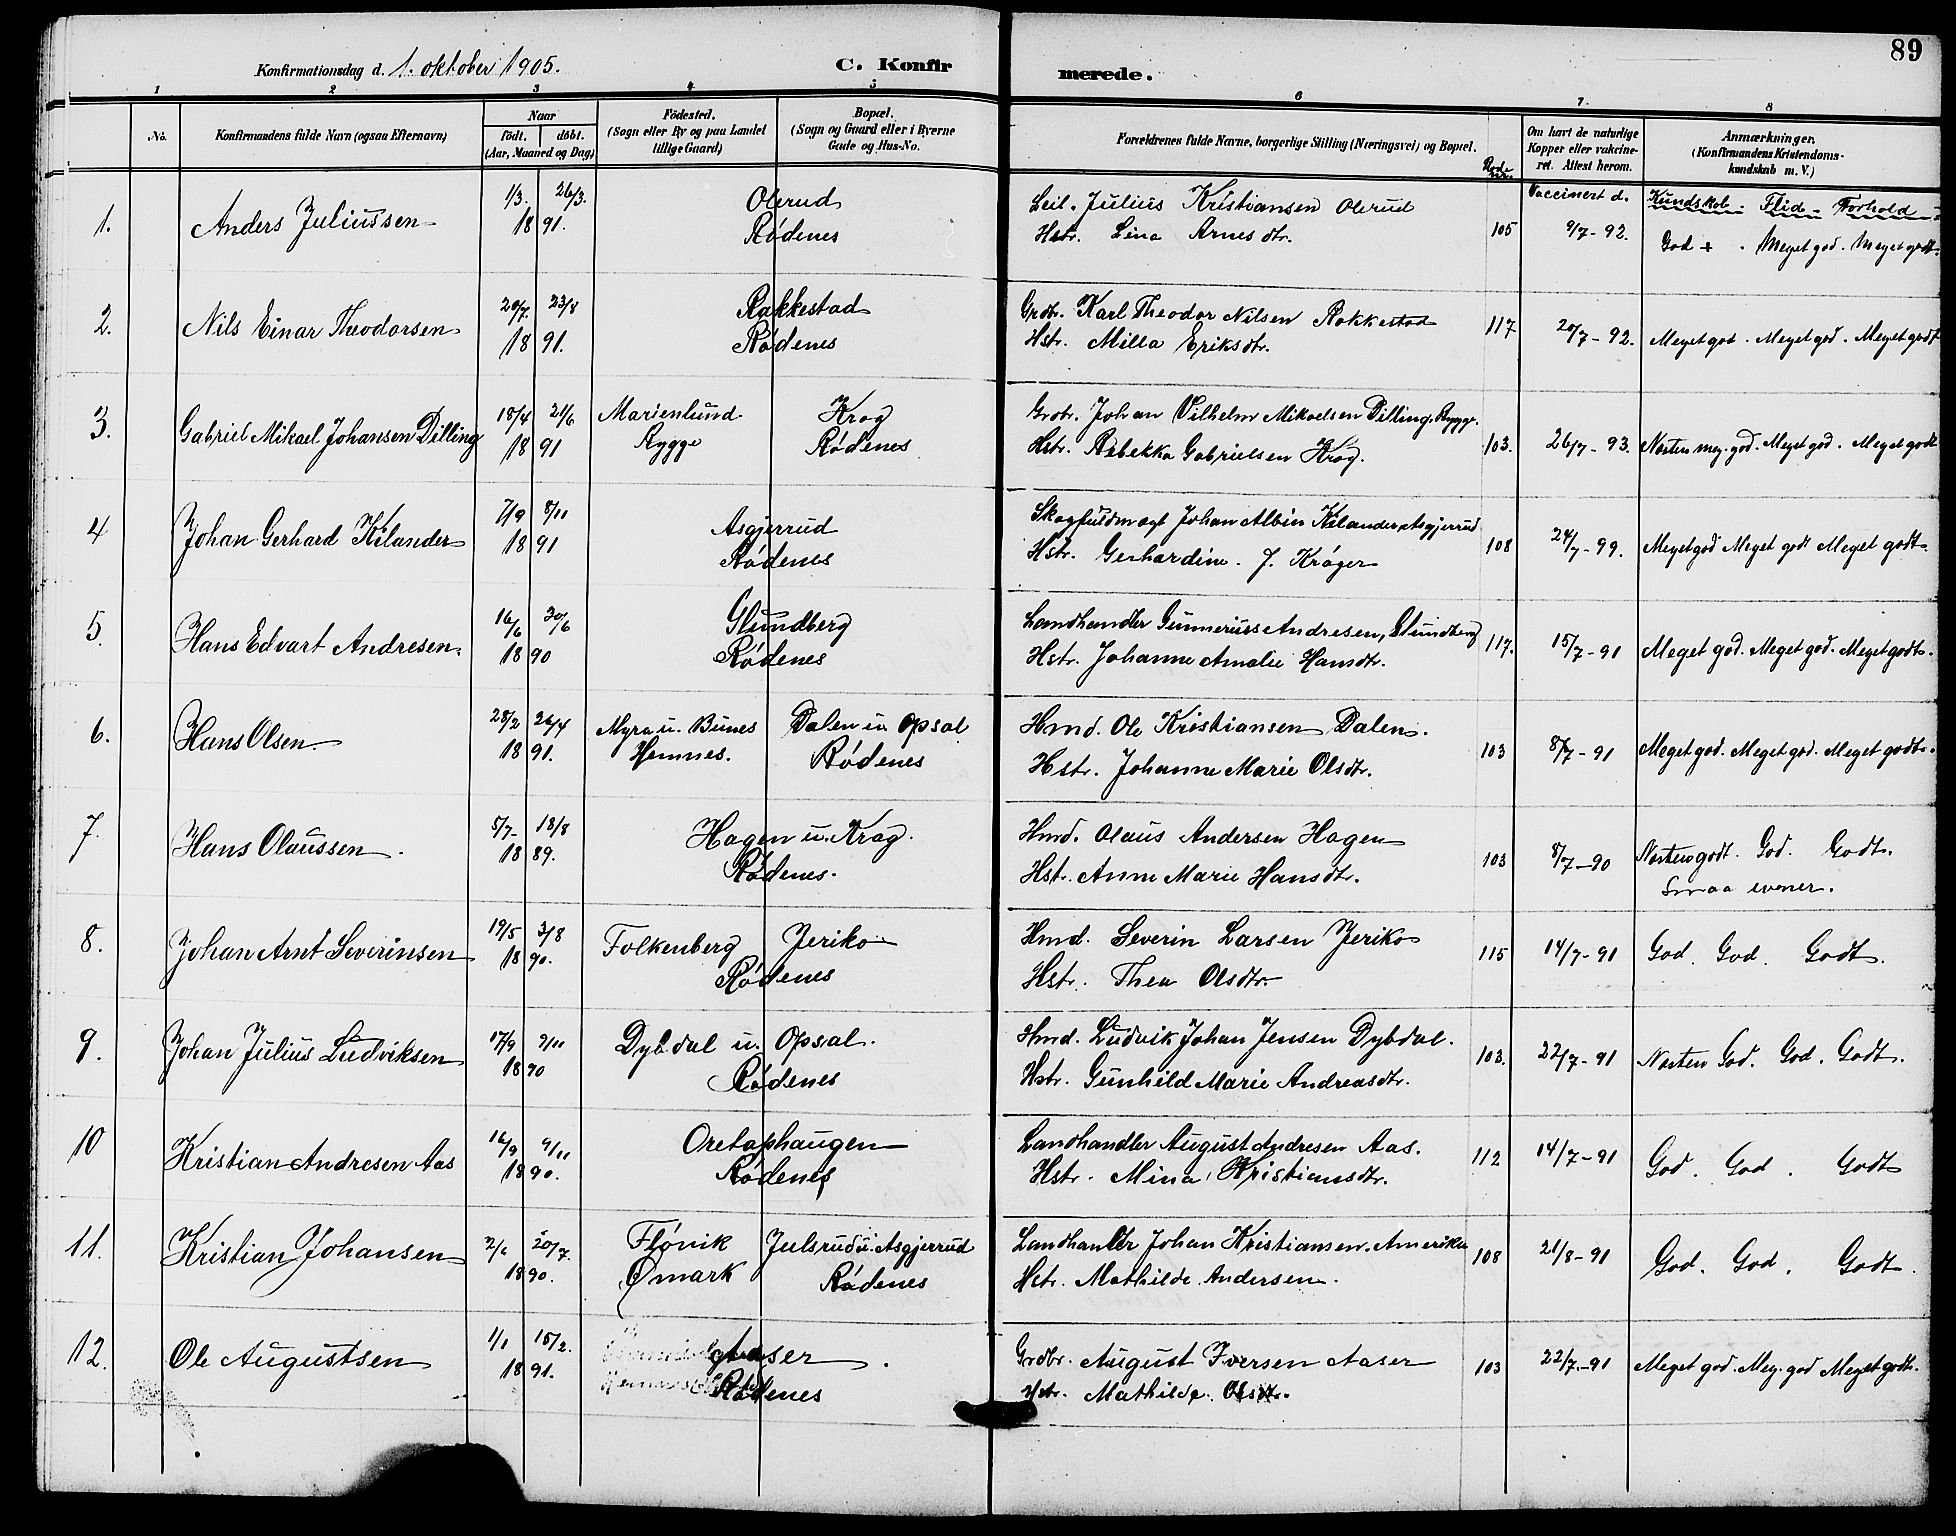 89
Konfirmationsdag d. 1. oktober 1905.
C. Konfirmerede.
1 2 3 4 5 6 7. 8
No.
Konfirmandens fulde Navn (ogsaa Efternavn)
Naar
födt. döbt.
(Aar, Maaned og Dag)
Födested.
(Sogn eller By og paa Landet
tillige Gaard)
Bopæl.
(Sogn og Gaard eller i Byerne
Gade og Hus-No.
Forældrenes fulde Navne, borgerlige Stilling (Næringsvei) og Bopæl.
Om havt de naturlige
Kopper eller vakcine-
ret. Attest herom.
Anmærkninger.
(Konfirmandens Kristendoms-
kundskab m. V.)
Vaccinert d. Kundskab. Flid. Forhold
1. Anders Juliussen 1/3. 26/3. Olerud Leil. Julius Kristiansen Olerud
1891. Rødenes Hstr. Lina Arnesdtr. 105 9/7-92. God + . Meget god. Meget godt.
2. Nils Einar Theodorsen 20/7. 23/8 Rakkestad Grdbr. Karl Theodor Nilsen Rakkestad
1891. Rødenes Hstr. Milla Eriksdtr. 117 20/7-92. Meget god. Meget god. Meget godt
3. Gabriel Mikael Johansen Dilling 18/4 21/6 Marienlund Krog Grdbr. Johan Vilhelm Mikaelsen Dilling, Rygge.
1891 Rygge Rødenes Hstr. Rebekka Gabrielsen Krog. 103. 26/7-93. Næsten meg. god. Meget god. Meget godt
4 Johan Gerhard Kilander 7/9 8/11 Asgjerrud Skogfuldmægt Johan Albin Kilander, Asgjerrud
1891 Rødenes Hstr. Gerhardine J. Krøger 108 24/7-99. Meget god Meget god Meget godt.
5. Hans Edvart Andresen. 16/6 30/6 Slundberg Landhandler Gunnerius Andresen, Slundberg
1890 Rødenes Hstr. Johanne Amalie Hansdtr. 117. 15/7-91 Meget god. Meget god. Meget godt.
6. Hans Olsen 28/2 26/4 Myra u. Bunes Dalen u. Opsal Hmd. Ole Kristiansen Dalen.
1891. Hemnes. Rødenes Hstr. Johanne Marie Olsdtr. 103 8/7-91 Meget god. Meget god. Meget godt.
7. Hans Olaussen. 5/7 18/8 Hagen u. Krog. Hmd. Olaus Andersen Hagen
1889. Rødenes. Hstr. Anne Marie Hansdtr. 103 8/7-90 Næsten godt. God. Godt.
Smaa evner.
8. Johan Arnt Severinsen 19/5 3/8 Folkenberg Jeriko Hmd. Severin Larsen Jeriko
1890. Rødenes Hstr. Thea Olsdtr. 115 14/7-91 God. God. Godt.
9. Johan Julius Ludviksen 17/9 9/11 Dybdal u. Opsal. Hmd. Ludvik Johan Jensen Dybdal.
1890 Rødenes Hstr. Gunhild Marie Andreasdtr. 103. 22/7-91 Næsten God. God. Godt.
10 Kristian Andresen Aas 16/9 9/11 Oretaphaugen Landhandler August Andresen Aas.
1890. Rødenes Hstr. Mina Kristiansdtr. 112 14/7-91 God. God. Godt
11. Kristian Johansen 20/7. Fløvik Julsrud u. Asgjerrud Landhandler Johan Kristiansen, Amerika
1890. Ømark Rødenes Hstr. Mathilde Andersen. 108 21/8-91 God. God. Godt.
12. Ole Augustsen 1/1 15/2. Aaser Grdbr. August Iversen Aaser
1891. Rødenes Hstr. Mathilde Olsdtr. 103 22/7-91 Meget god. Meg. god Meget godt.